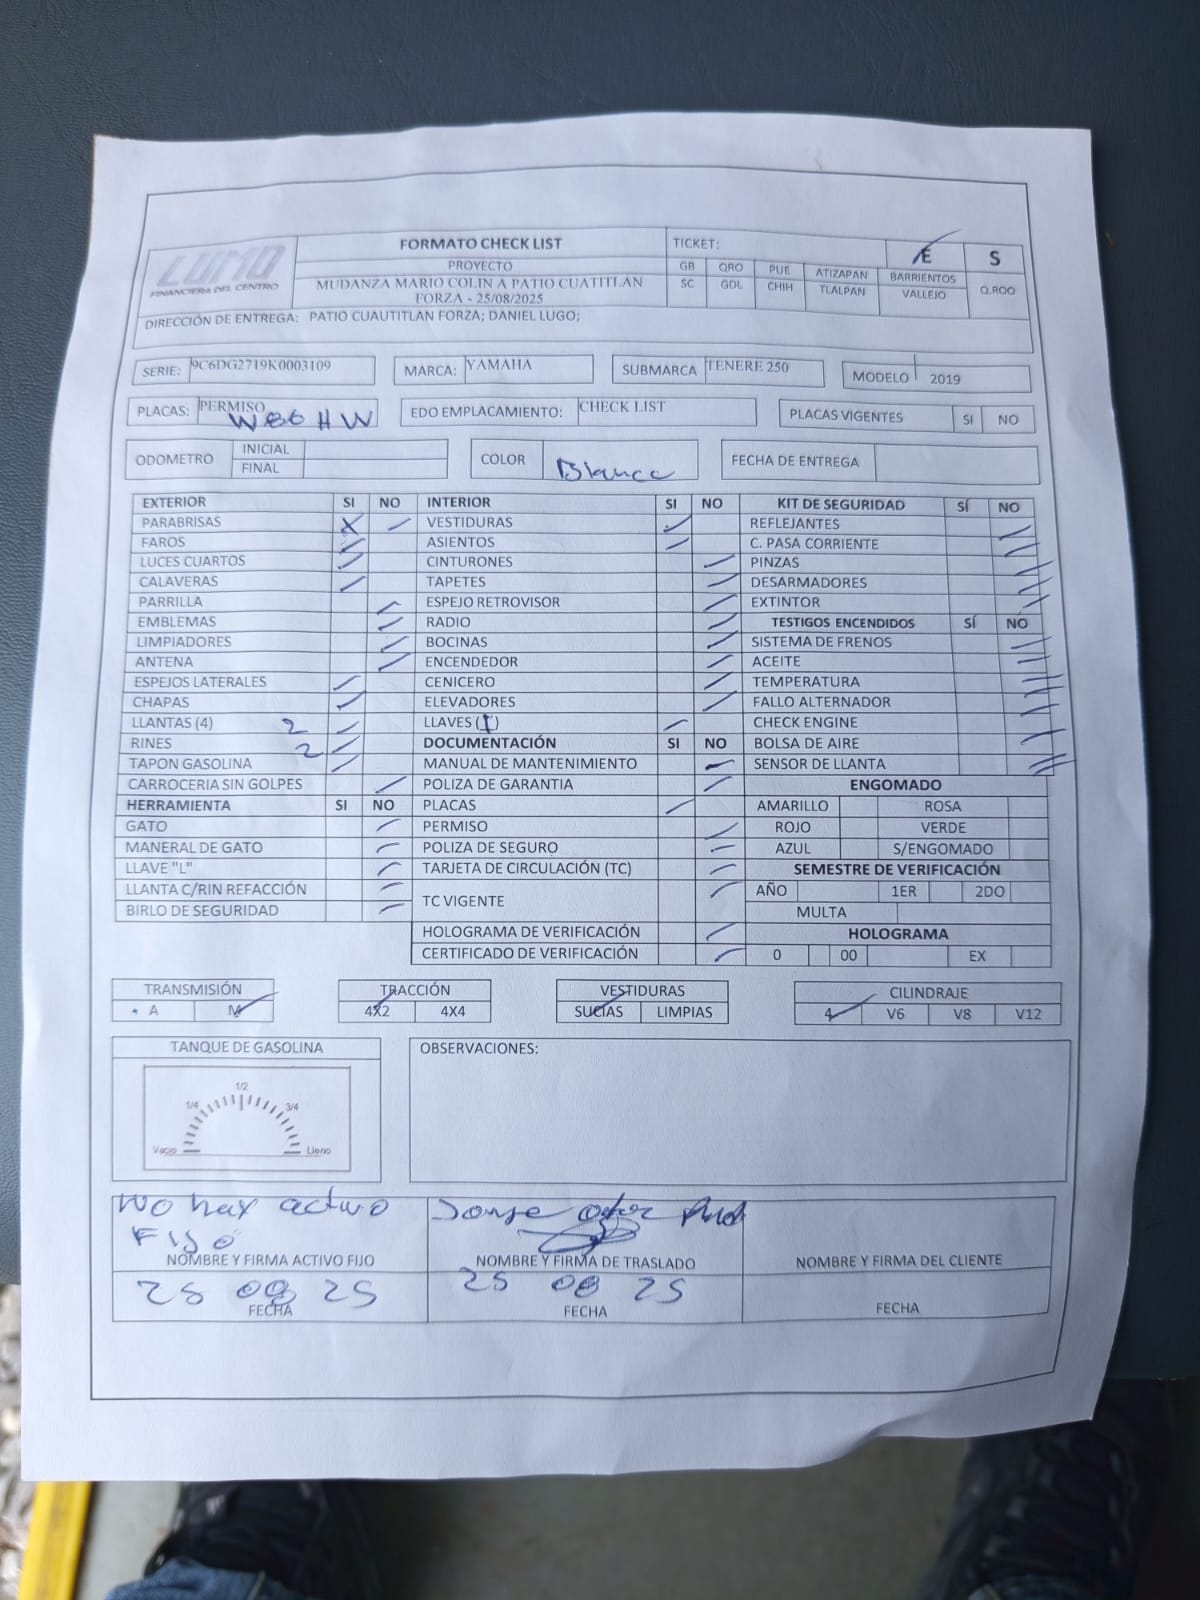 LUMO
FINANCIERA DEL CENTRO
FORMATO CHECK LIST
PROYECTO
MUDANZA MARIO COLIN A PATIO CUATITLAN
FORZA - 25/08/2025
TICKET: E S
GB QRO PUE ATIZAPAN BARRIENTOS Q.ROO
SC GDL CHIH TLALPAN VALLEJO
DIRECCIÓN DE ENTREGA: PATIO CUAUTITLAN FORZA; DANIEL LUGO;
SERIE: 9C6DG2719K0003109 MARCA: YAMAHA SUBMARCA TENERE 250 MODELO 2019
PLACAS: PERMISO W86HW EDO EMPLACAMIENTO: CHECK LIST PLACAS VIGENTES SI NO
ODOMETRO INICIAL COLOR Blanca FECHA DE ENTREGA
FINAL
EXTERIOR SI NO INTERIOR SI NO KIT DE SEGURIDAD SÍ NO
PARABRISAS VESTIDURAS REFLEJANTES
FAROS ASIENTOS C. PASA CORRIENTE
LUCES CUARTOS CINTURONES PINZAS
CALAVERAS TAPETES DESARMADORES
PARRILLA ESPEJO RETROVISOR EXTINTOR
EMBLEMAS RADIO TESTIGOS ENCENDIDOS SÍ NO
LIMPIADORES BOCINAS SISTEMA DE FRENOS
ANTENA ENCENDEDOR ACEITE
ESPEJOS LATERALES CENICERO TEMPERATURA
CHAPAS ELEVADORES FALLO ALTERNADOR
LLANTAS (4) 2 LLAVES (1) CHECK ENGINE
RINES 2 DOCUMENTACIÓN SI NO BOLSA DE AIRE
TAPON GASOLINA MANUAL DE MANTENIMIENTO SENSOR DE LLANTA
CARROCERIA SIN GOLPES POLIZA DE GARANTIA ENGOMADO
HERRAMIENTA SI NO PLACAS AMARILLO ROSA
GATO PERMISO ROJO VERDE
MANERAL DE GATO POLIZA DE SEGURO AZUL S/ENGOMADO
LLAVE "L" TARJETA DE CIRCULACIÓN (TC) SEMESTRE DE VERIFICACIÓN
LLANTA C/RIN REFACCIÓN TC VIGENTE AÑO 1ER 2DO
BIRLO DE SEGURIDAD MULTA
HOLOGRAMA DE VERIFICACIÓN HOLOGRAMA
CERTIFICADO DE VERIFICACIÓN 0 00 EX
TRANSMISIÓN TRACCIÓN VESTIDURAS CILINDRAJE
A M 4X2 4X4 SUCIAS LIMPIAS 4 V6 V8 V12
TANQUE DE GASOLINA OBSERVACIONES:
1/4 1/2 3/4
Vacio Lleno
No hay activo
Fijo
Jorge
NOMBRE Y FIRMA ACTIVO FIJO NOMBRE Y FIRMA DE TRASLADO NOMBRE Y FIRMA DEL CLIENTE
25 08 25 25 08 25
FECHA FECHA FECHA